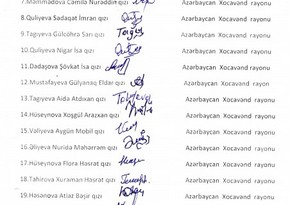 7.Məmmədova Cəmilə Nurəddin qızı Azərbaycan Xocavənd rayonu
8.Quliyeva Sədaqət İmran qızı Azərbaycan Xocavənd rayonu
9.Tağıyeva Gülçöhrə Sarı qızı Azərbaycan Xocavənd rayonu
10.Quliyeva Nigar İsa qızı Azərbaycan Xocavənd rayonu
11.Dadaşova Şövkət İsa qızı Azərbaycan Xocavənd rayonu
12.Mustafayeva Gülyanaq Eldar qızı Azərbaycan Xocavənd rayonu
13.Tağıyeva Aida Atdıxan qızı Azərbaycan Xocavənd rayonu
14.Hüseynova Xoşgül Arazxan qızı Azərbaycan Xocavənd rayonu
15.Vəliyeva Aygün Mobil qızı Azərbaycan Xocavənd rayonu
16.Əliyeva Nuridə Məhərrəm qızı Azərbaycan Xocavənd rayonu
17.Hüseynova Flora Həsrət qızı Azərbaycan Xocavənd rayonu
18.Tahirova Xuraman Həsrət qızı Azərbaycan Xocavənd rayonu
19.Həsənova Bəşir qızı Azərbaycan Xocavənd rayonu